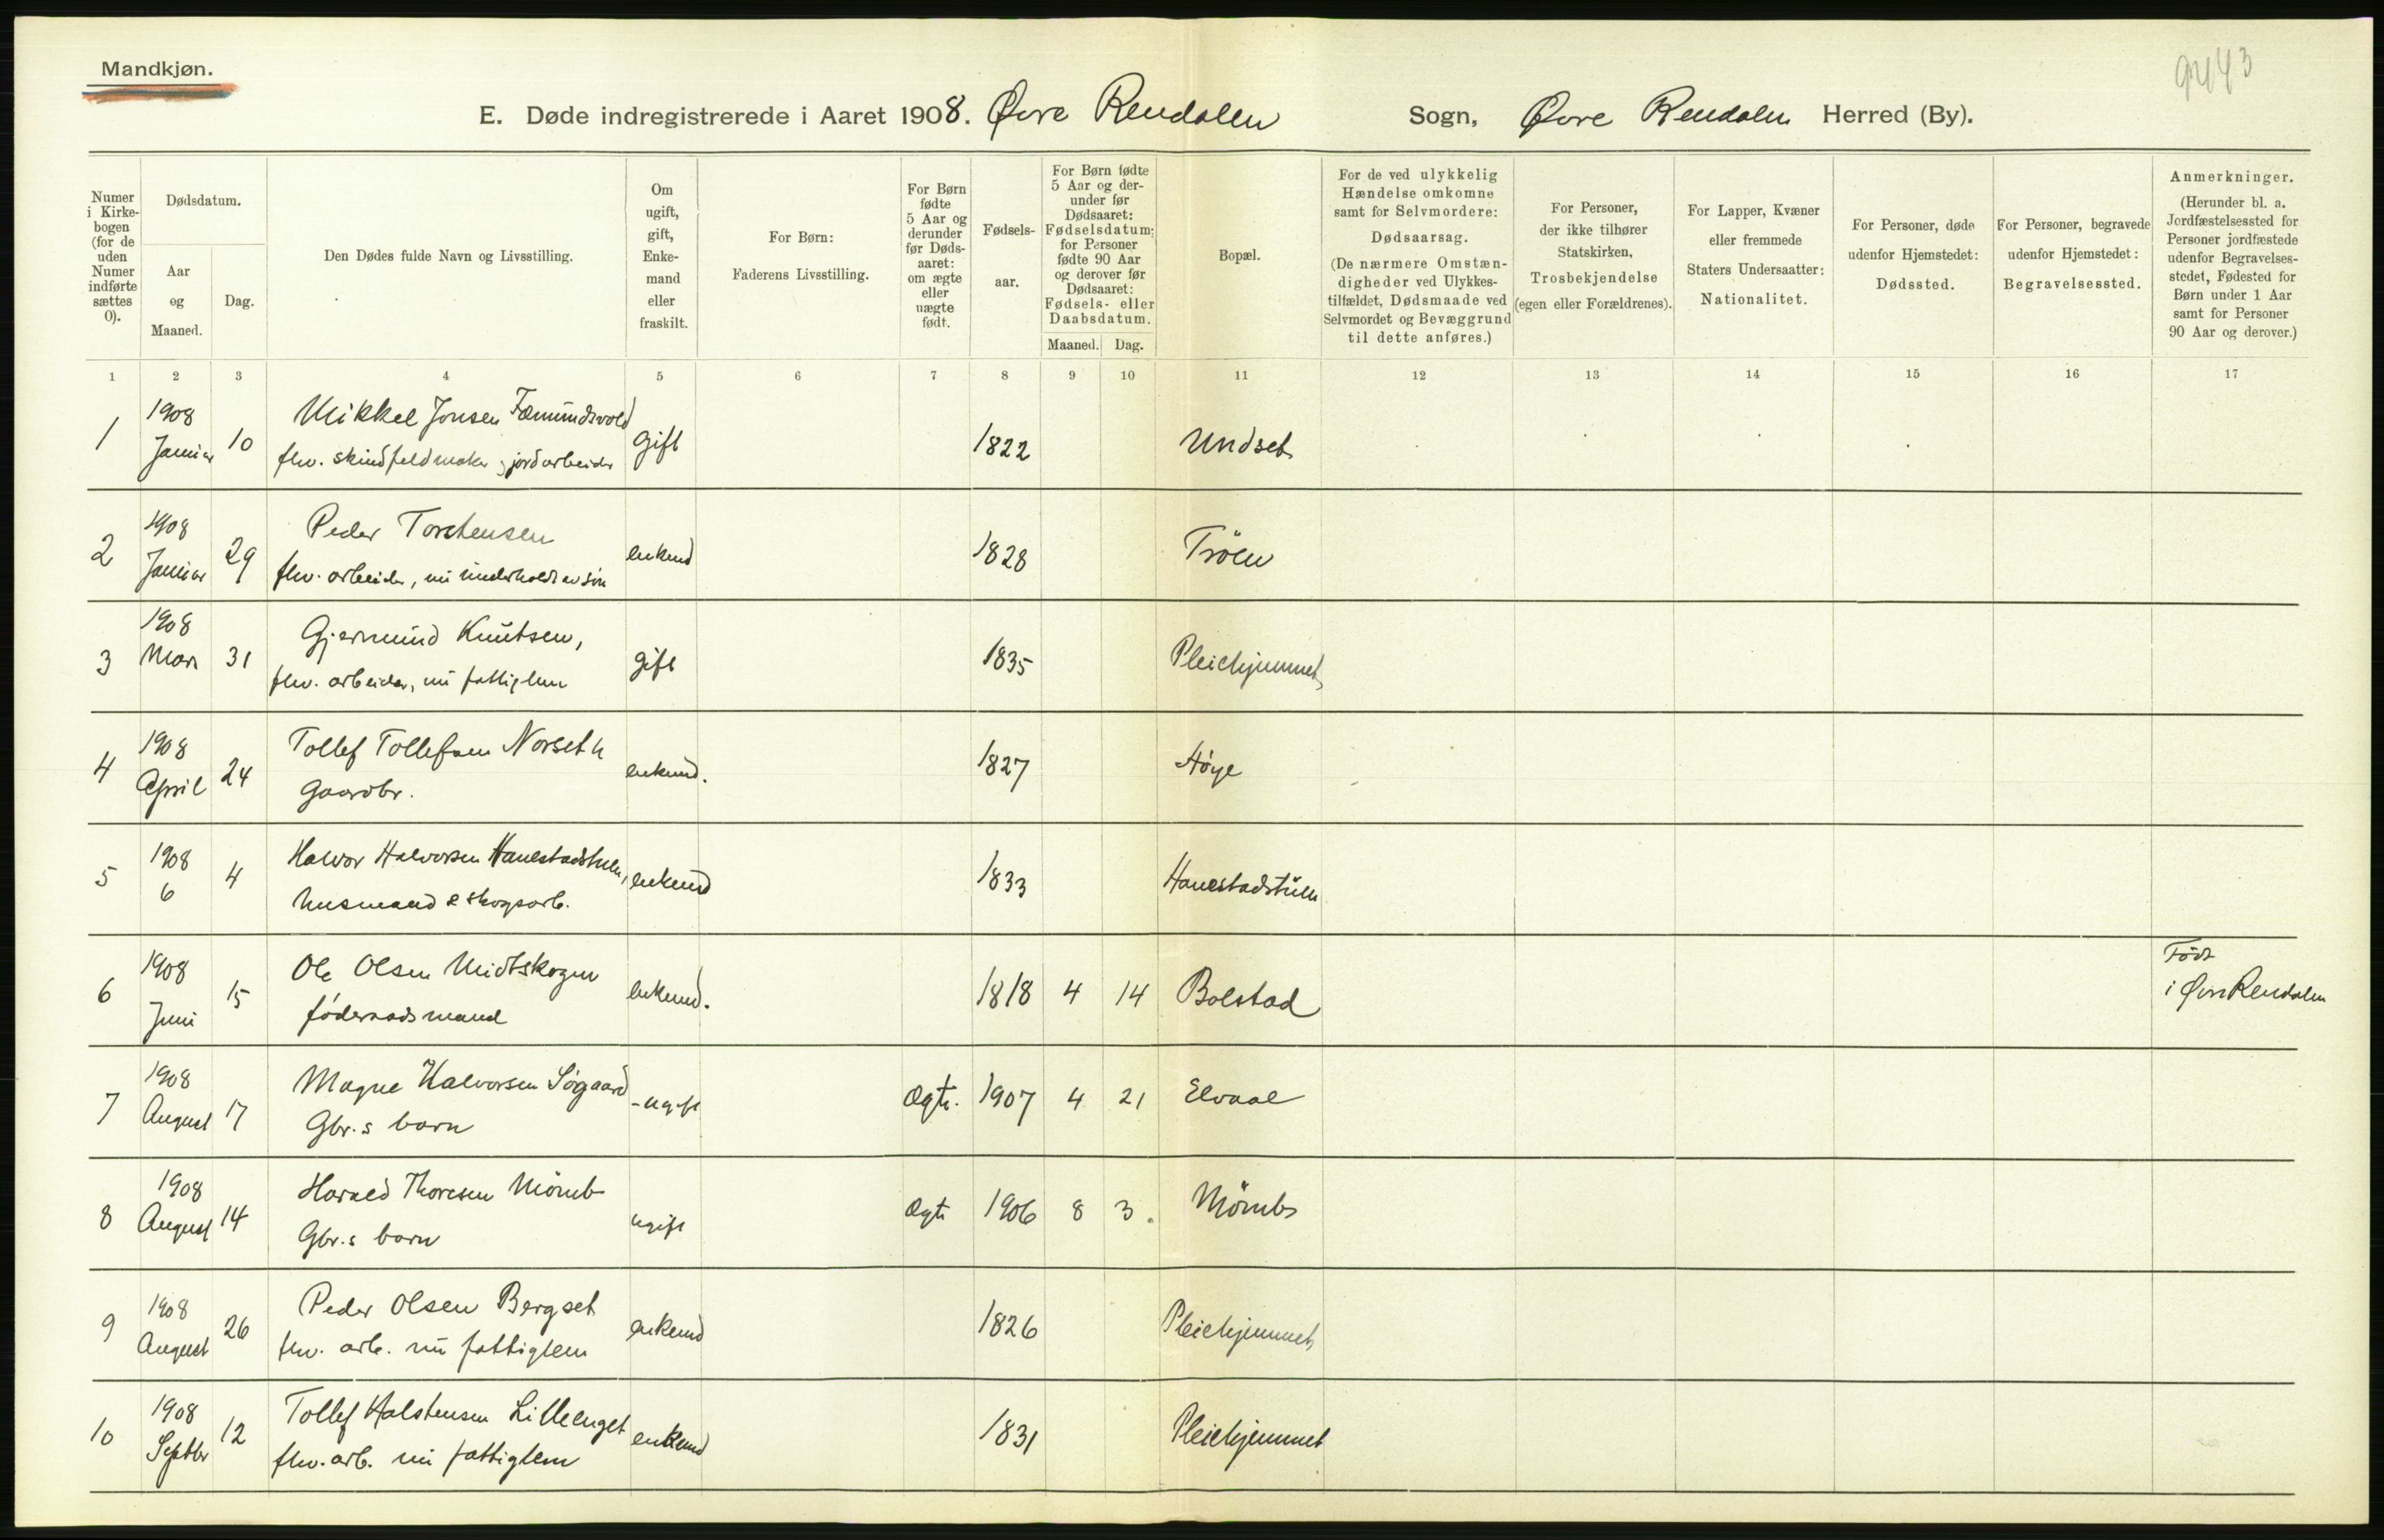 Mandkjøn.
9443
E. Døde indregistrerede i Aaret 1908. Øvre Rendalen Sogn, Øvre Rendalen Herred (By).
Numer i Kirkebogen (for de uden Numer indførte sættes 0).
Dødsdatum.
Aar og Maaned.
Dag.
Den Dødes fulde Navn og Livsstilling.
Om ugift, gift, Enkemand eller fraskilt.
For Børn:
Faderens Livsstilling.
For Børn fødte 5 Aar og derunder før Dødsaaret: om ægte eller uægte født.
Fødselsaar.
For Børn fødte 5 Aar og derunder før Dødsaaret: Fødselsdatum; for Personer fødte 90 Aar og derover før Dødsaaret: Fødsels- eller Daabsdatum.
Maaned. Dag.
Bopæl.
For de ved ulykkelig Hændelse omkomne samt for Selvmordere:
Dødsaarsag.
(De nærmere Omstændigheder ved Ulykkestilfældet, Dødsmaade ved Selvmordet og Bevæggrund til dette anføres.)
For Personer, der ikke tilhører Statskirken, Trosbekjendelse (egen eller Forældrenes).
For Lapper, Kvæner eller fremmede Staters Undersaatter: Nationalitet.
For Personer, døde udenfor Hjemstedet: Dødssted.
For Personer, begravede udenfor Hjemstedet: Begravelsessted.
Anmerkninger.
(Herunder bl. a. Jordfæstelsessted for Personer jordfæstede udenfor Begravelsesstedet, Fødested for Børn under 1 Aar samt for Personer 90 Aar og derover.)
1 2 3 4 5 6 7 8 9 10 11 12 13 14 15 16 17
1908 Mikkel Jonsen Fæmundsvold
1 Januar 10 flv. skindfeldmaker, jordarbeider gift 1822 Undset
1908 Peder Torstensen
2 Januar 29 flv. arbeider, nu underholdt av søn enkemd 1828 Trøen
1908 Gjermund Knutsen,
3 Mars 31 flv. arbeider, nu fattiglem gift 1835 Pleiehjemmet
1908 Tollef Tollefsen Norseth
4 April 24 Gaardbr. enkemd. 1827 Høye
1908 Halvor Halvorsen Hanestadstuen,
5 6 4 husmand & skogsarb. enkemd 1833 Hanestadstuen
1908 Ole Olsen Midtskogen Født
6 Juni 15 føderaadsmand enkemd. 1818 4 14 Bolstad i Øvre Rendalen
1908 Magne Halvorsen Søgaard
7 August 17 Gbr.s barn ugift Ægte. 1907 4 21 Elvaal
1908 Harald Thoresen Mömb
8 August 14 Gbr.s barn ugift Ægte 1906 8 3. Mömb
1908 Peder Olsen Bergset
9 August 26 flv. arb. nu fattiglem enkemd 1826 Pleiehjemmet
1908 Tollef Halstensen Lilleenget
10 Septbr 12 flv. arb. nu fattiglem enkemd 1831 Pleiehjemmet